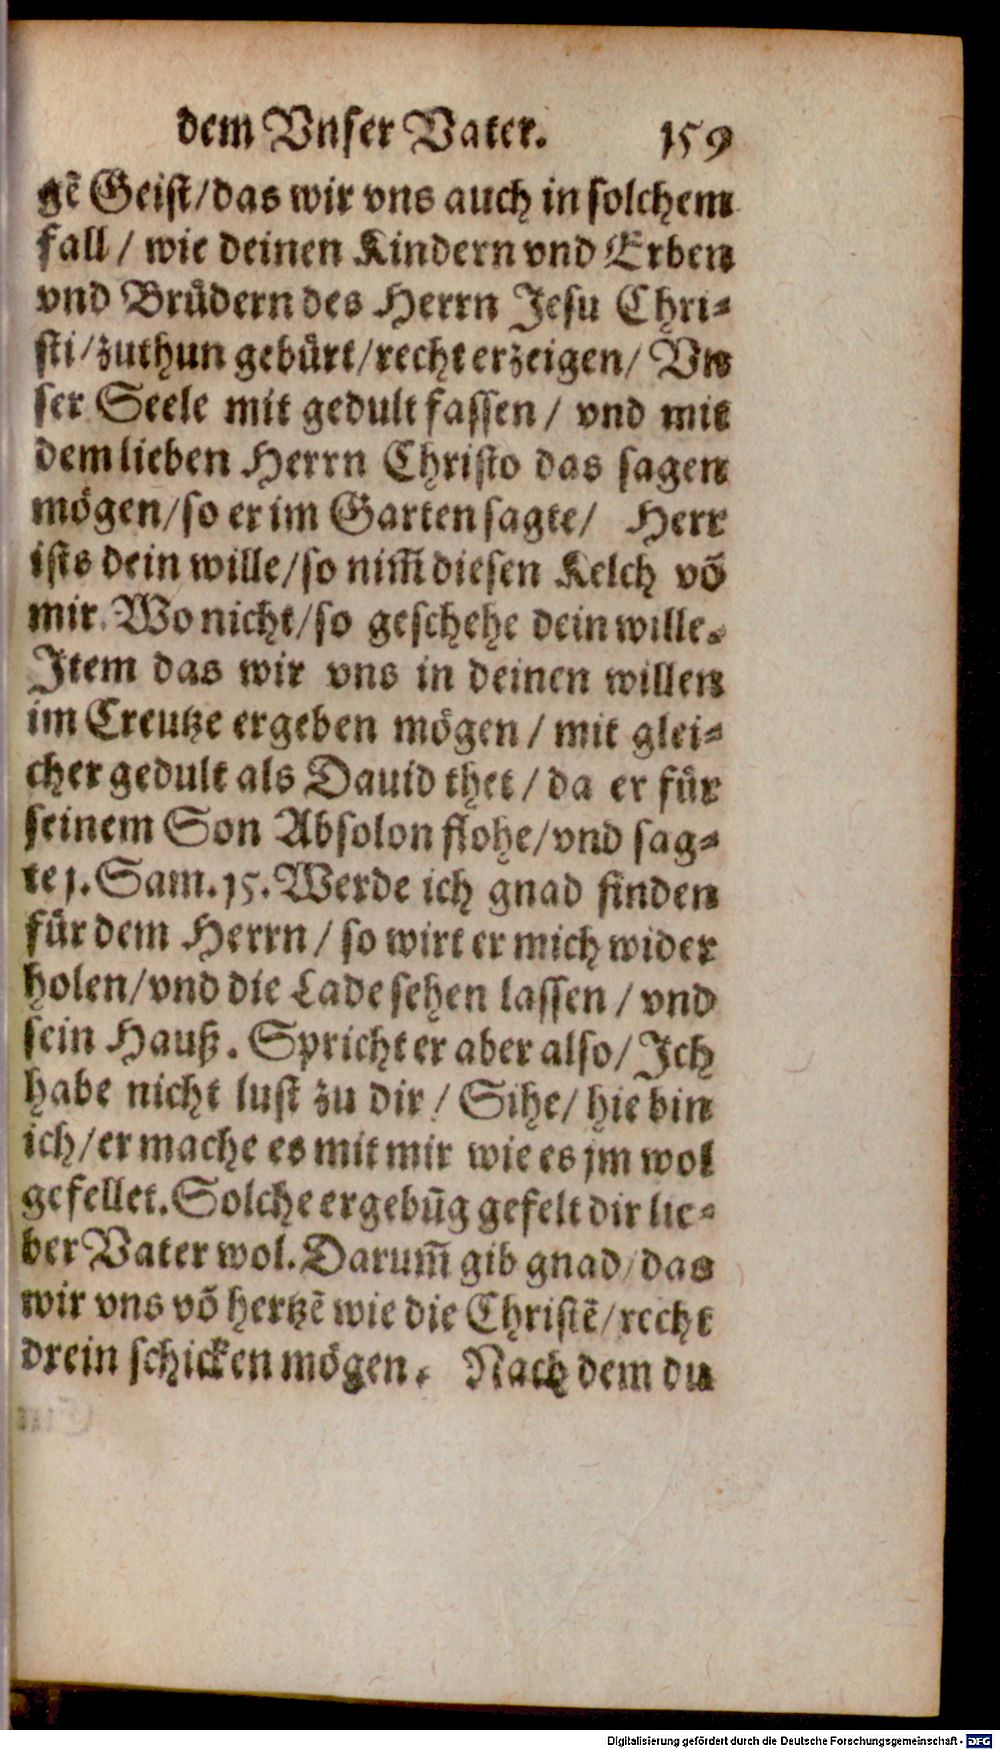 dem Vnser Vater. 159
gẽ Geist/das wir vns auch in solchem
fall / wie deinen Kindern vnd Erben
vnd Brüdern des Herrn Jesu Chri-
sti/zuthun gebürt/recht erzeigen/ Vn
ser Seele mit gedult fassen / vnd mit
dem lieben Herrn Christo das sagen
mögen/so er im Garten sagte/ Herr
ists dein wille/so nim̃ diesen Kelch võ
mir. Wo nicht/so geschehe dein wille.
Item das wir vns in deinen willen
im Creutze ergeben mögen / mit glei-
cher gedult als Dauid thet / da er für
seinem Son Absolon flohe/vnd sag-
te 1. Sam. 15. Werde ich gnad finden
für dem Herrn / so wirt er mich wider
holen/vnd die Lade sehen lassen / vnd
sein Hauß. Spricht er aber also/ Ich
habe nicht lust zu dir / Sihe/ hie bin
ich/er mache es mit mir wie es jm wol
gefellet. Solche ergebũg gefelt dir lie-
ber Vater wol. Darum̃ gib gnad/das
wir vns võ hertzẽ wie die Christẽ/recht
drein schicken mögen. Nach dem du
Digitalisierung gefördert durch die Deutsche Forschungsgemeinschaft - DFG